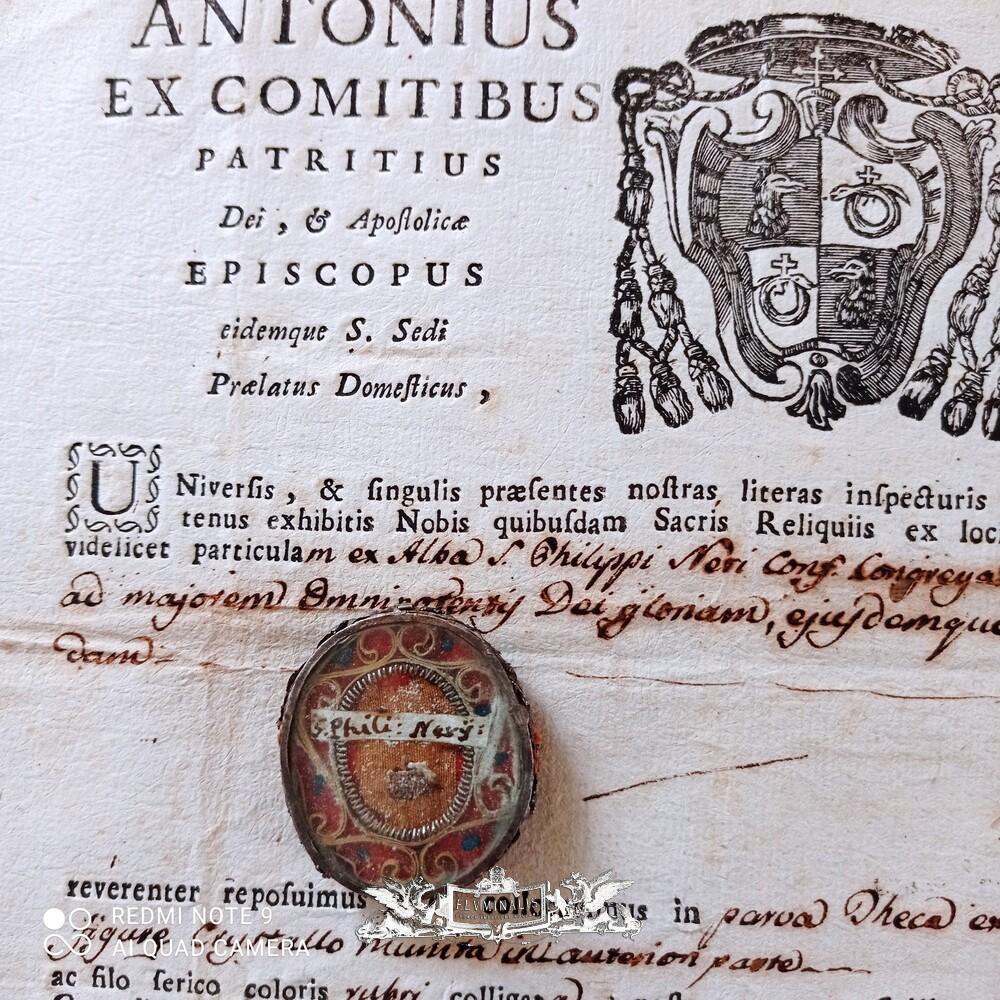 ANTONIUS
EX COMITIBUS
PATRITIUS
Dei, & Apoſtolicæ
EPISCOPUS
eidemque S. Sedi
Prælatus Domeſticus,
UNiverſis, & ſingulis præſentes noſtras literas inſpecturis
tenus exhibitis Nobis quibuſdam Sacris Reliquiis ex loc
videlicet particulam ex Alba S. Philippi Neri Conf. Congrega
ad majorem Omnipotentis Dei gloriam, ejusdemque
dam
S. Phili: Nerij:
reverenter repoſuimus in parva Theca
figure Crystallo munita in anteriori parte
ac filo ſerico coloris rubri
REDMI NOTE 9
AI QUAD CAMERA